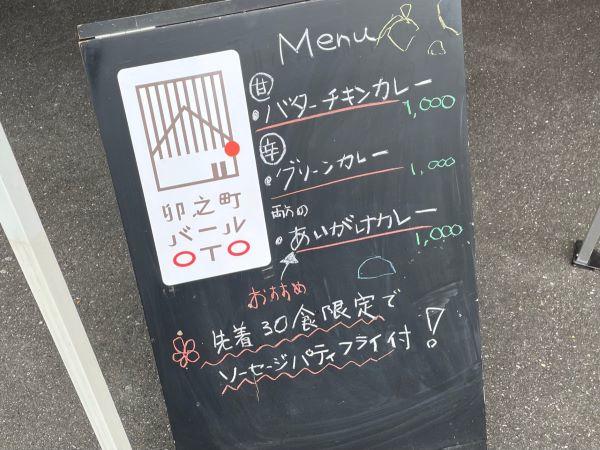 Menu
甘
・バターチキンカレー
1,000
辛
・グリーンカレー
1,000
両方の
・あいがけカレー
1,000
おすすめ
先着30食限定で
ソーセージパティフライ付!
卯之町
バール
〇T〇